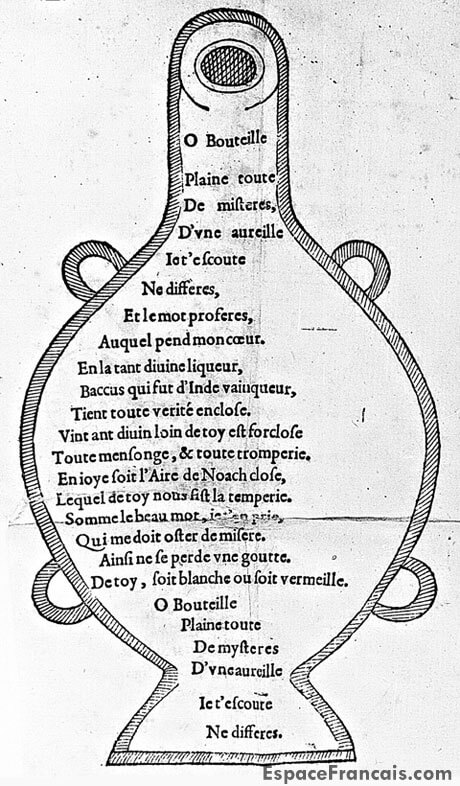 O Bouteille
Plaine toute
De misteres,
D'vne aureille
Iet'escoute
Ne differes,
Et le mot proferes,
Auquel pend mon cœur.
En la tant diuine liqueur,
Baccus qui fut d'Inde vainqueur,
Tient toute verité enclose.
Vint ant diuin loin de toy est forclose
Toute mensonge, & toute tromperie.
En ioye soit l'Aire de Noach close,
Lequel de toy nous fist la temperie.
Somme le beau mot, ie t'en prie,
Qui me doit oster de misere.
Ainsi ne se perde vne goutte.
De toy, soit blanche ou soit vermeille.
O Bouteille
Plaine toute
De mysteres
D'vne aureille
Iet'escoute
Ne differes.
EspaceFrancais.com